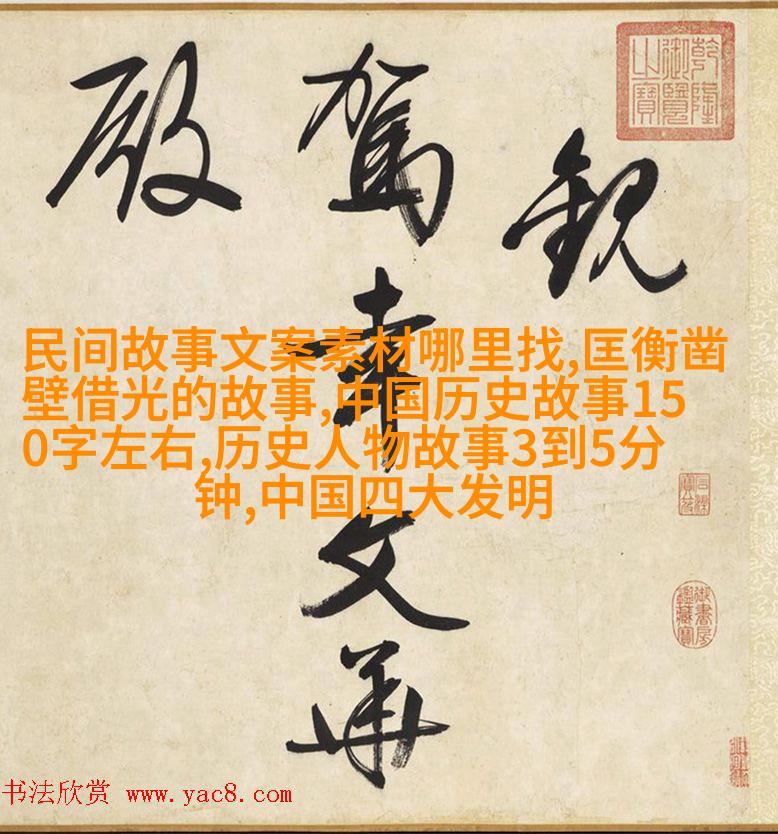 觀
駕幸文華
殿
乾隆御覽之寶
民间故事文案素材哪里找,匡衡凿
壁借光的故事,中国历史故事15
0字左右,历史人物故事3到5分
钟,中国四大发明
石渠寶笈
御書房鑑藏寶
书法欣赏 www.yac8.com